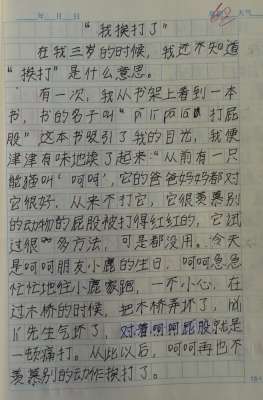 年 月 日
天气
"我挨打了"
在我三岁的时候，我还不知道
"挨打"是什么意思。
有一次，我从书架上看到一本
书，书的名子叫"啪啪啪啪打屁
股"这本书吸引了我的目光，我便
津津有味地读了起来"从前有一只
熊猫叫'呵呵'，它的爸爸妈妈都对
它很好，从来不打它，它很羡慕别
的动物的屁股被打得红红的，它试
过很多方法，可是都没用。今天
是呵呵朋友小鹿的生日，呵呵急急
忙忙地往小鹿家跑，一不小心，在
过木桥的时候，把木桥弄坏了，
先生气坏了，对着呵呵屁股就是
一顿痛打。从此以后，呵呵再也不
羡慕别的动作挨打了。